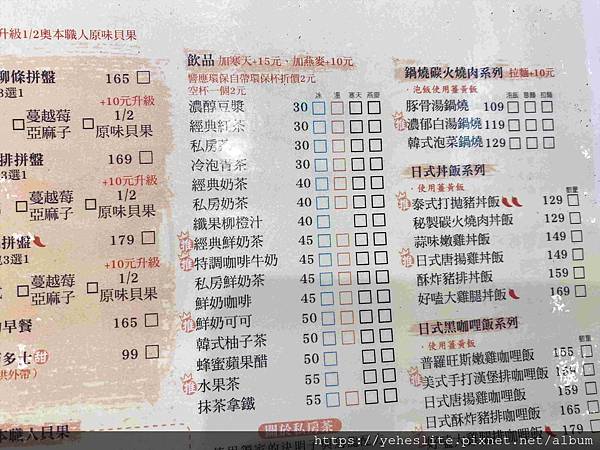 升級1/2奧本職人原味貝果
柳條拼盤 165
3選1
+10元升級
蔓越莓 亞麻子
1/2 原味貝果
排拼盤 169
選1
+10元升級
蔓越莓 亞麻子
1/2 原味貝果
拼盤 179
3選1
+10元升級
蔓越莓 亞麻子
1/2 原味貝果
早餐 165
多士 甜 99
供外帶)
本職人貝果
飲品 加寒天+15元、加燕麥+10元
響應環保自帶環保杯折價2元
空杯一個2元
冰 溫 寒天 燕麥
濃醇豆漿 30
經典紅茶 30
私房茶 30
冷泡青茶 30
經典奶茶 40
私房奶茶 40
纖果柳橙汁 40
推 經典鮮奶茶 45
推 特調咖啡牛奶 45
私房鮮奶茶 45
鮮奶咖啡 45
推 鮮奶可可 50
韓式柚子茶 50
蜂蜜蘋果醋 50
推 水果茶 55
抹茶拿鐵 55
關於私房茶
鍋燒碳火燒肉系列 拉麵+10元
·泡飯使用薑黃飯
泡飯 意麵 拉麵
豚骨湯鍋燒 109
推 濃郁白湯鍋燒 119
韓式泡菜鍋燒 129
日式丼飯系列
·使用薑黃飯
數量
推 泰式打拋豬丼飯 129
秘製碳火燒肉丼飯 129
蒜味嫩雞丼飯 149
推 日式唐揚雞丼飯 159
酥炸豬排丼飯 149
好嗑大雞腿丼飯 169
日式黑咖哩飯系列
·使用薑黃飯
數量
普羅旺斯嫩雞咖哩飯 155
推 美式手打漢堡排咖哩飯
日式唐揚雞咖哩飯 159
日式酥炸豬排咖哩飯 165
https://yeheslite.pixnet.net/album